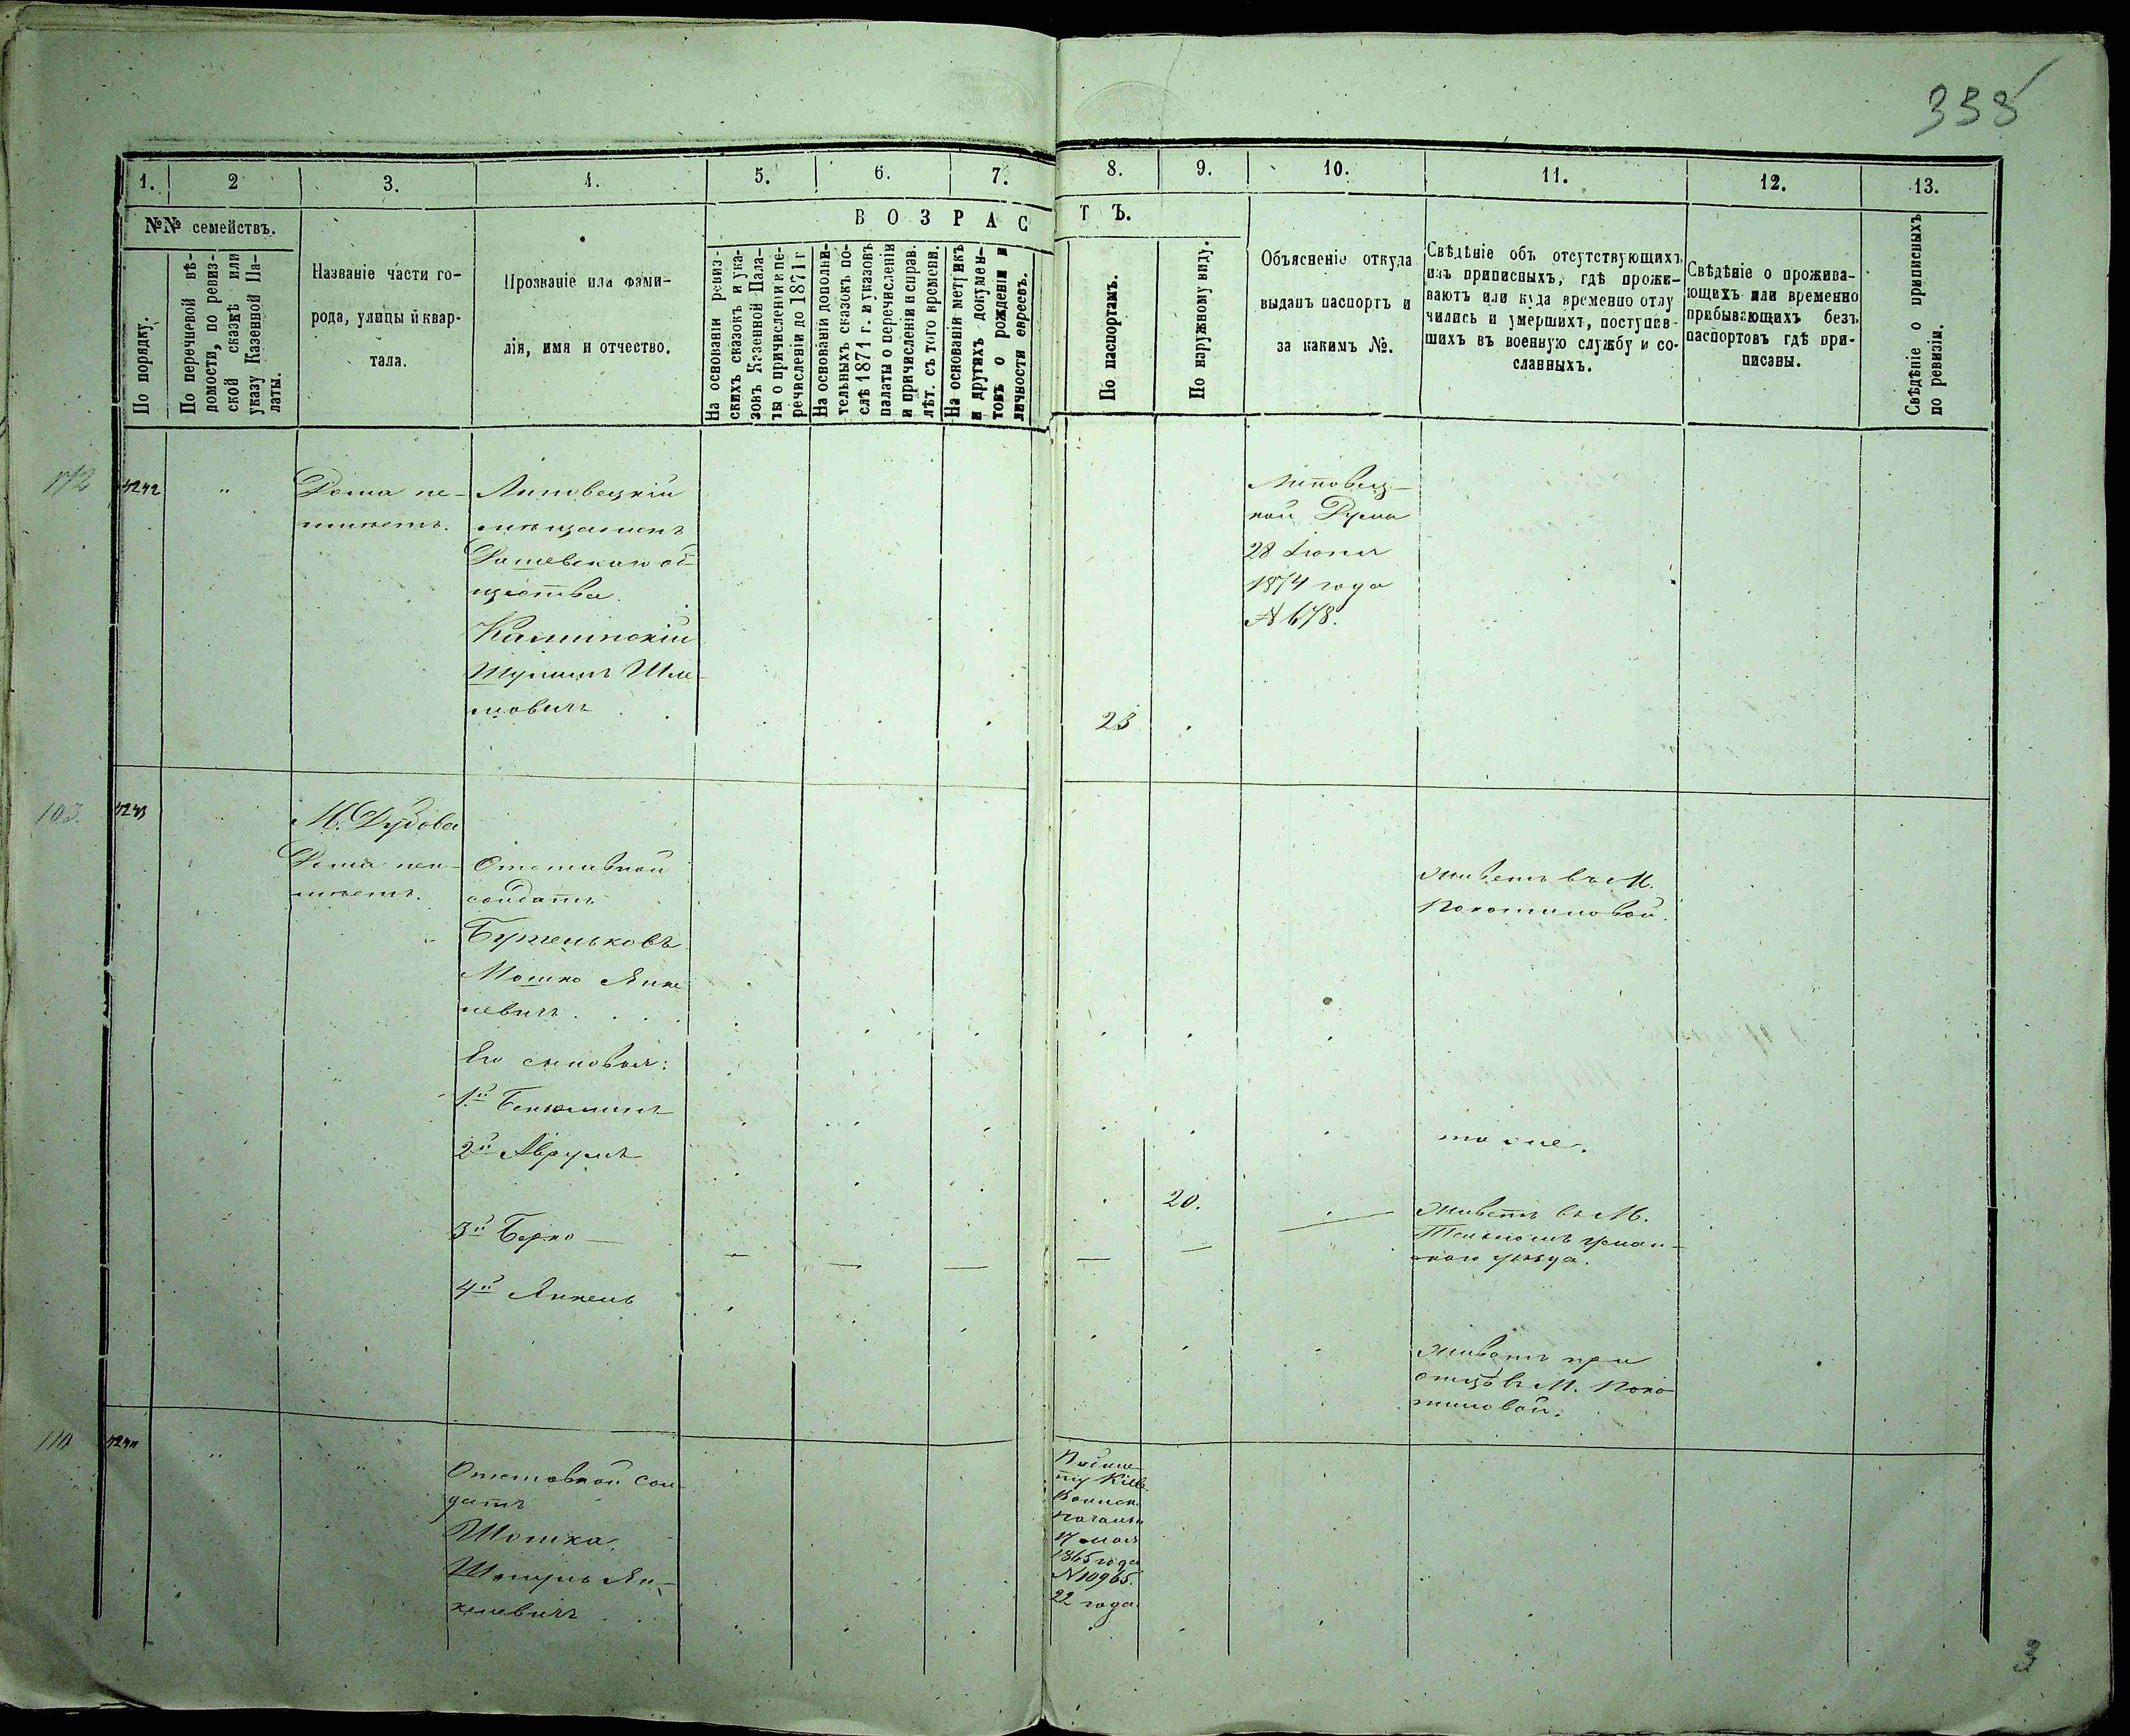 358
1.
2
3.
4.
5.
6.
7.
8.
9.
10.
11.
12.
13.
№№ семействъ.
По порядку.
По перечневой вѣ-
домости, по ревиз-
ской сказкѣ или
указу Казенной Па-
латы.
Названіе части го-
рода, улицы и квар-
тала.
Прозваніе или фами-
лія, имя и отчество.
ВОЗРАС
ТЪ.
На основаніи ревиз-
скихъ сказокъ и ука-
зовъ Казенной Пала-
ты о причисленіи и пе-
речисленіи до 1871 г
На основаніи дополни-
тельныхъ сказокъ по-
слѣ 1871 г. и указовъ
палаты о перечисленіи
и причисленіи и справ.
лѣт. съ того времени.
На основаніи метрикъ
и другихъ докумен-
товъ о рожденіи и
личности евреевъ.
По паспортамъ.
По наружному виду.
Объясненіе откуда
выданъ паспортъ и
за какимъ №.
Свѣдѣніе объ отсутствующихъ
изъ приписныхъ, гдѣ прожи-
ваютъ или куда временно отлу
чились и умершихъ, поступив-
шихъ въ военную службу и со-
сланныхъ.
Свѣдѣніе о прожива-
ющихъ или временно
прибывающихъ безъ
паспортовъ гдѣ при-
писаны.
Свѣдѣніе о приписныхъ
по ревизіи.
4242
Дома не-
имѣетъ.
Липовецкій
мѣщанинъ
Дашевскаго об-
щества
Каминскій
23
Липовец-
кой Думы
28 Іюня
1874 года
№ 678.
4243
М. Дубова
Дома неи-
мѣетъ.
Отставной
солдатъ
Бутельковъ
Мошко Янке
левичъ
Его сыновья:
1й Беньюминъ
2й Аврумъ
3й Берко
4й Янкель
20.
живетъ въ М.
Покотиловой.
тоже.
живетъ въ М.
Тепликѣ
уѣзда.
живетъ при
отцѣ въ М. Поко
тиловой.
110
Отставной сол-
датъ
Ян-
келевичъ
Кіев.
Воинск.
Началь.
17 мая
1865 года
№ 10965.
22 года.
3